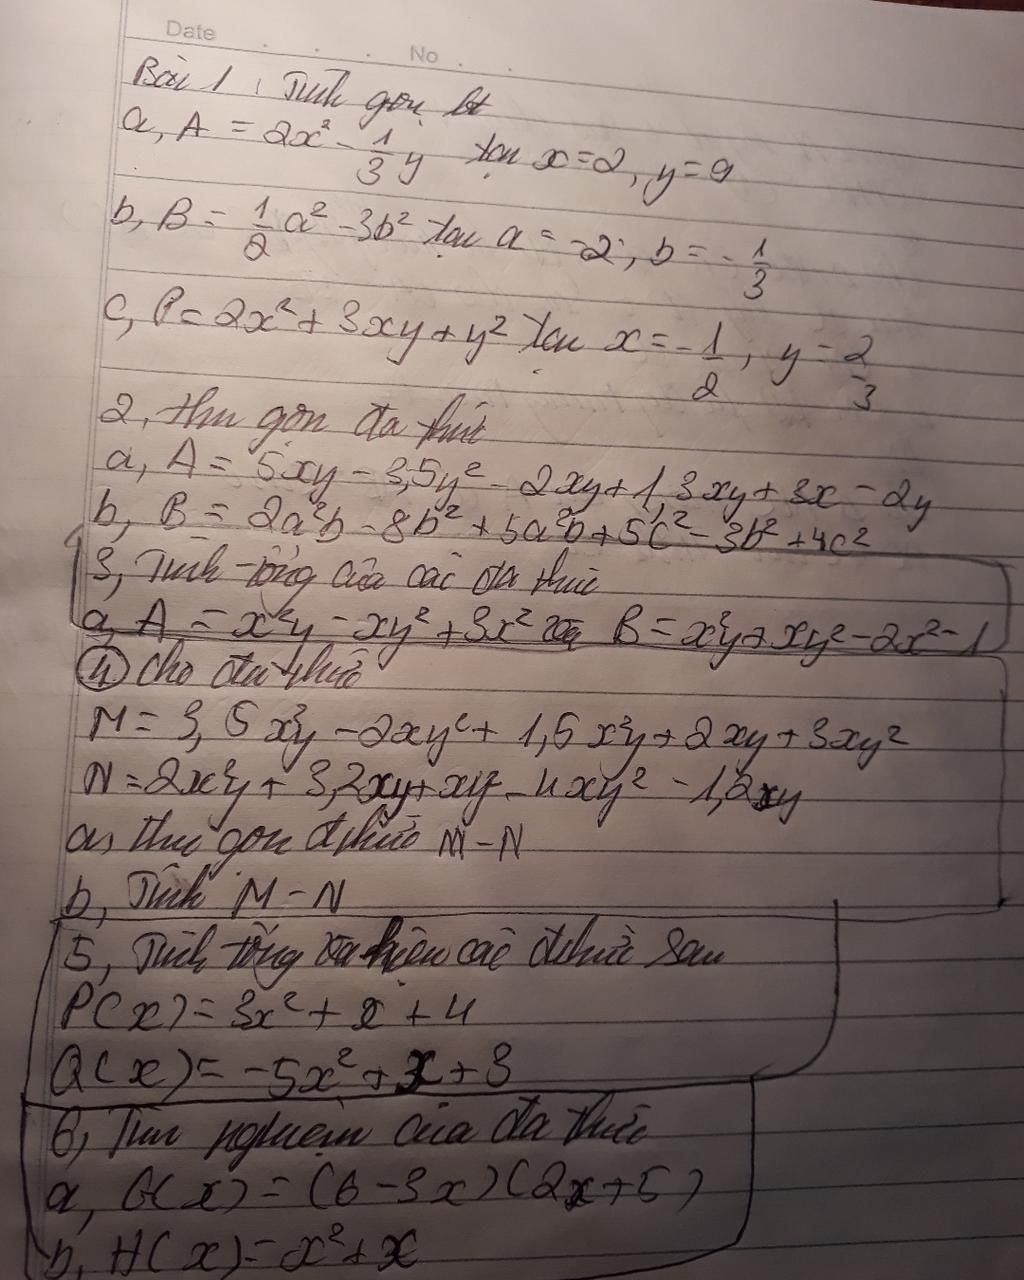 Date . . . No . .
Bài 1 : Tính gọn bt
a, A = 2x² - 1/3 y tại x=2, y=9
b, B = 1/2 a² - 3b² tại a = -2; b = - 1/3
c, P = 2x² + 3xy + y² tại x = - 1/2, y = 2/3
2, thu gọn đa thức
a, A = 5xy - 3,5y² - 2xy + 1,3xy + 3x - 2y
b, B = 2a²b - 8b² + 5a²b + 5c² - 3b² + 4c²
3, Tính tổng của các đa thức
a, A = x²y - xy² + 3x² và B = x²y + xy² - 2x² - 1
④ Cho đa thức
M = 3,5x²y - 2xy² + 1,5x²y + 2xy + 3xy²
N = 2x²y + 3,2xy + xy² - 4xy² - 1,2xy
a, thu gọn đ thức M - N
b, Tính M - N
5, Tính tổng và hiệu các đthức sau
P(x) = 3x² + x + 4
Q(x) = -5x² + x + 3
6, Tìm nghiệm của đa thức
a, G(x) = (6-3x)(2x+5)
b, H(x) = x² + x